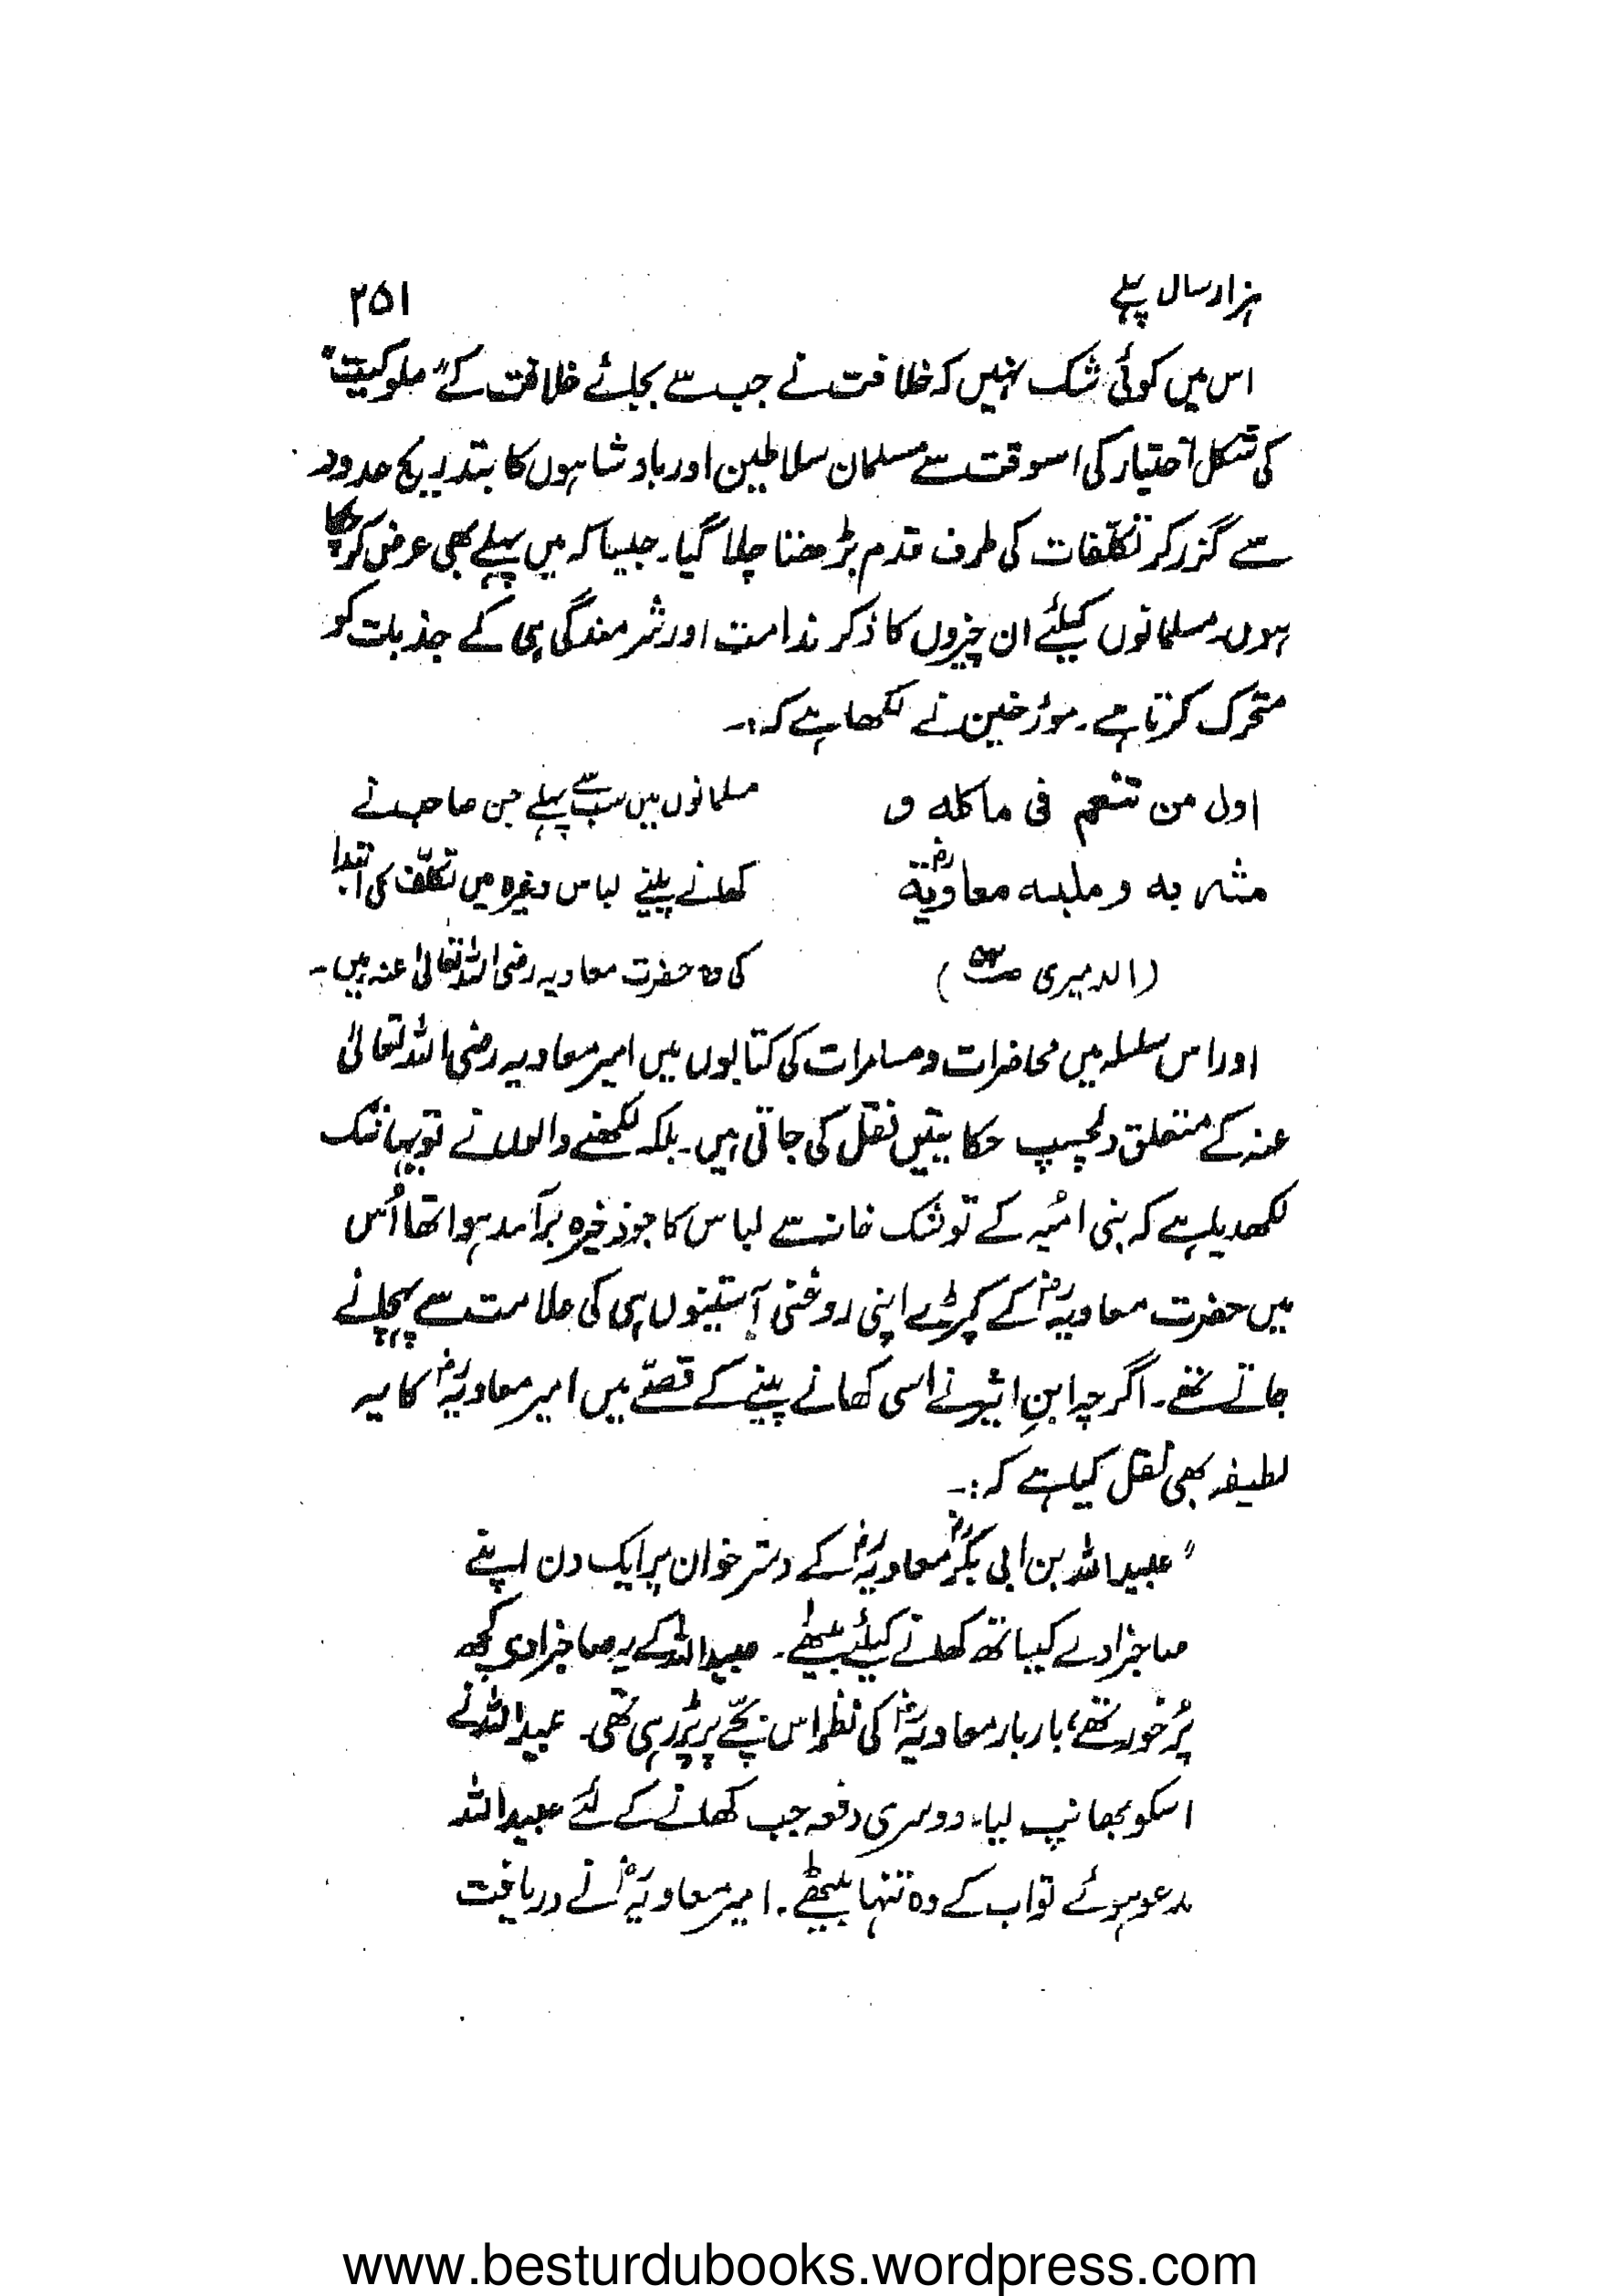 ہزار سال پہلے ۲۵۱
اس میں کوئی شک نہیں کہ خلافت نے جب سے بجائے خلافت کے "ملوکیت"
کی شکل اختیار کی اسوقت سے مسلمان سلاطین اور بادشاہوں کا بتدریج حدود
سے گزر کر تکلّفات کی طرف قدم بڑھتا چلا گیا۔ جیسا کہ میں پہلے بھی عرض کر چکا
ہوں۔ مسلمانوں کیلئے ان چیزوں کا ذکر ندامت اور شرمندگی ہی کے جذبات کو
متحرک کرتا ہے۔ مورٔخین نے لکھا ہے کہ:۔
اول من تنعم فی ماکله و مسلمانوں میں سب سے پہلے جن صاحب نے
مشربه و ملبسه معاویةؓ کھانے پینے لباس وغیرہ میں تکلّف کی ابتدا
(الدمیری ) کی وہ حضرت معاویہ رضی اللہ تعالیٰ عنہ ہیں۔
اور اس سلسلہ میں محاضرات ومسامرات کی کتابوں میں امیر معاویہ رضی اللہ تعالیٰ
عنہ کے متعلق دلچسپ حکایتیں نقل کی جاتی ہیں۔ بلکہ لکھنے والوں نے تو یہانتک
لکھدیا ہے کہ بنی امُیہ کے توشک خانہ سے لباس کا جو ذخیرہ برآمد ہوا تھا اُس
میں حضرت معاویہؓ کے کپڑے اپنی روغنی آستینوں ہی کی علامت سے پہچانے
جاتے تھے۔ اگرچہ ابنِ اثیر نے اسی کھانے پینے کے قصّے میں امیر معاویہؓ کا یہ
لطیفہ بھی نقل کیا ہے کہ:۔
"عبیداللہ بن ابی بکرؓ معاویہؓ کے دسترخوان پر ایک دن اپنے
صاحبزادے کیساتھ کھانے کیلئے بیٹھے۔ عبیداللہ کے یہ صاحبزادی کچھ
پُرخور تھے، بار بار معاویہؓ کی نظر اس بچّے پر پڑ رہی تھی۔ عبیداللہ نے
اسکو بھانپ لیا۔ دوسری دفعہ جب کھانے کے لئے عبیداللہ
مدعو ہوئے تو اب کے وہ تنہا بیٹھے۔ امیر معاویہؓ نے دریافت
www.besturdubooks.wordpress.com